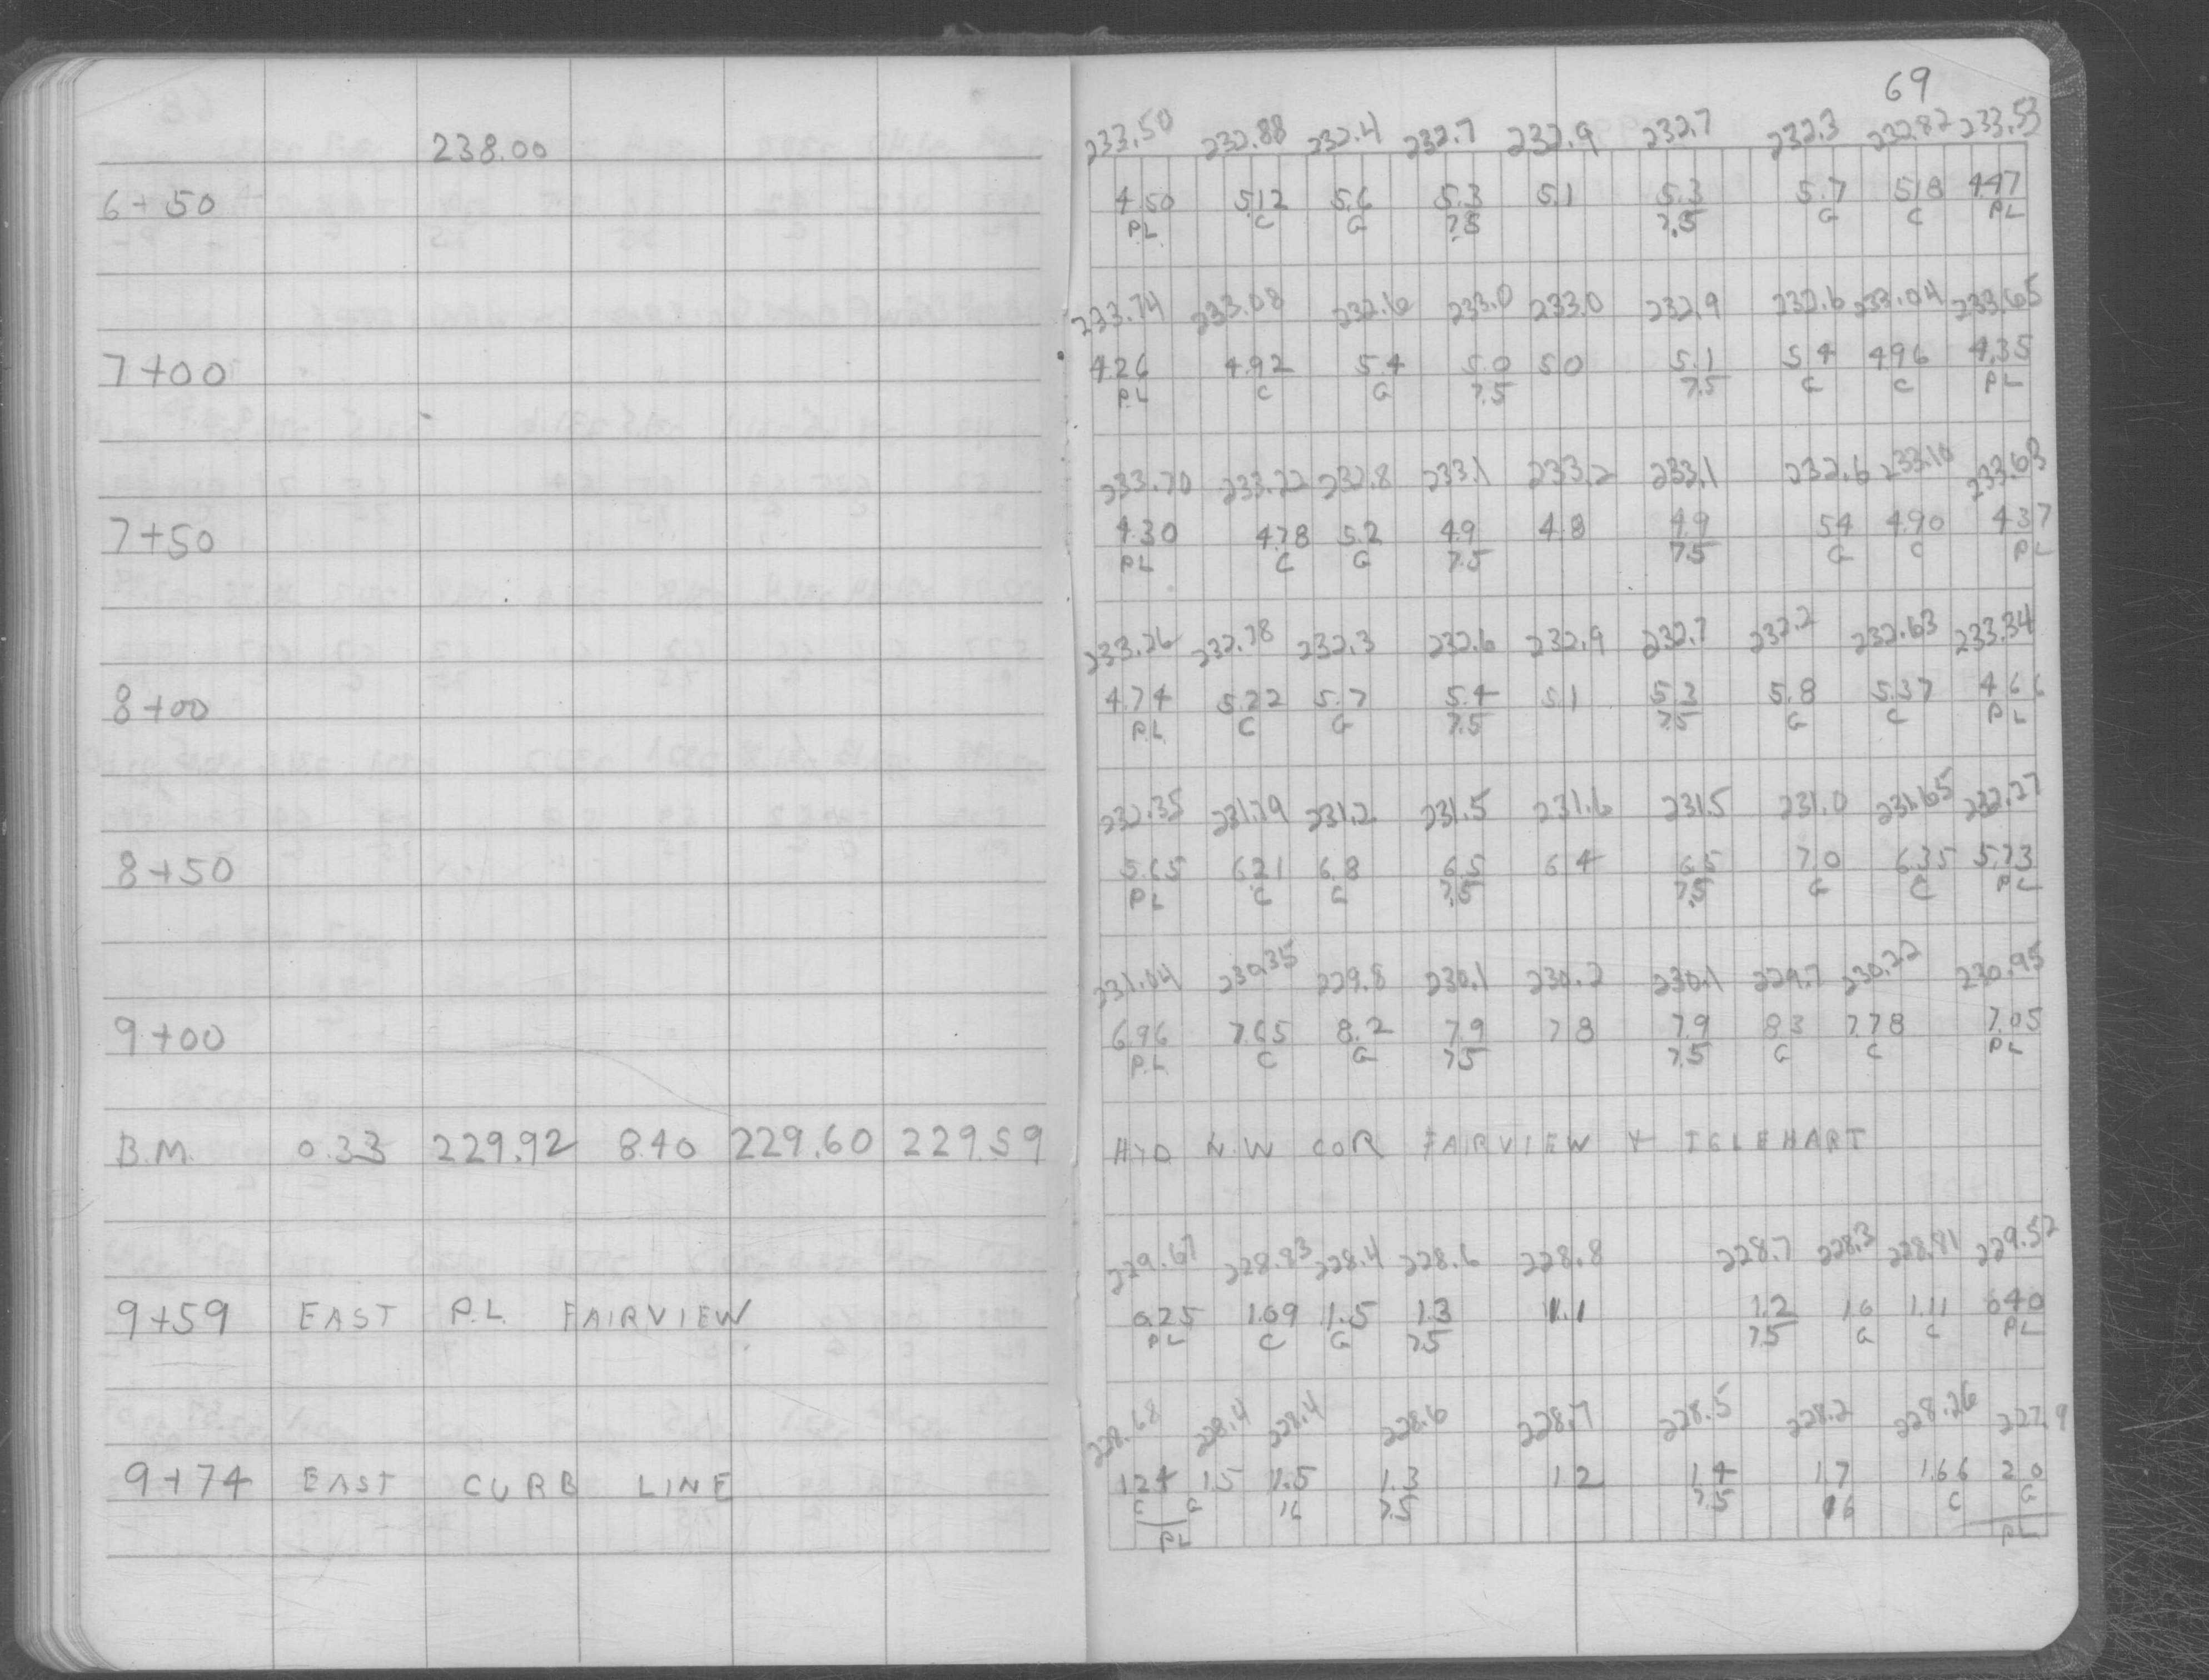 69
238.00 233.50 232.88 232.4 232.7 232.9 232.7 232.3 232.82 233.53
6+50 4.50 5.12 5.6 5.3 5.1 5.3 5.7 5.18 4.47
PL C G 7.5 7.5 G C PL
233.74 233.08 232.6 233.0 233.0 232.9 232.6 233.04 233.65
7+00 4.26 4.92 5.4 5.0 5.0 5.1 5.4 4.96 4.35
PL C G 7.5 7.5 G C PL
233.70 233.22 232.8 233.1 233.2 233.1 232.6 233.10 233.63
7+50 4.30 4.78 5.2 4.9 4.8 4.9 5.4 4.90 4.37
PL C G 7.5 7.5 G C PL
233.26 232.78 232.3 232.6 232.9 232.7 232.2 232.63 233.34
8+00 4.74 5.22 5.7 5.4 5.1 5.3 5.8 5.37 4.66
P.L. C G 7.5 7.5 G C PL
232.35 231.79 231.2 231.5 231.6 231.5 231.0 231.65 232.27
8+50 5.65 6.21 6.8 6.5 6.4 6.5 7.0 6.35 5.73
PL C G 7.5 7.5 G C PL
231.04 230.35 229.8 230.1 230.2 230.1 229.7 230.22 230.95
9+00 6.96 7.65 8.2 7.9 7.8 7.9 8.3 7.78 7.05
P.L. C G 7.5 7.5 G C PL
B.M. 0.33 229.92 8.40 229.60 229.59 HYD N.W COR FAIRVIEW & IGLEHART
229.67 228.83 228.4 228.6 228.8 228.7 228.3 228.81 229.52
9+59 EAST P.L. FAIRVIEW 0.25 1.09 1.5 1.3 1.1 1.2 1.6 1.11 0.40
PL C G 7.5 7.5 G C PL
228.68 228.4 228.4 228.6 228.7 228.5 228.2 228.26 227.9
9+74 EAST CURB LINE 1.24 1.5 1.5 1.3 1.2 1.4 1.7 1.66 2.0
C G 16 7.5 7.5 16 C G
PL PL